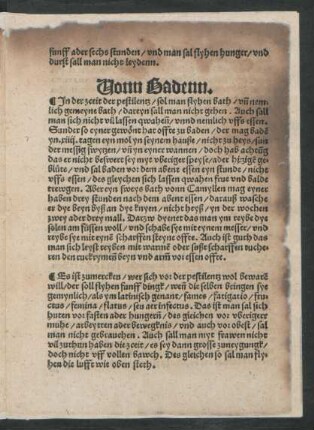 funff ader sechs stunden / vnd man sal flyhen hunger / vnd
durst sall man nicht leydenn.
Vonn Badenn.
¶ In der zceit der pestilentz / sol man flyhen bath / vñ nem-
lich gemeyne bath / dareyn sall man nicht gehen. Auch sall
man sich nicht vil lassen qwahen / vnnd nemlich vffs essen.
Sander so eyner gewõnt hat offte zu baden / der mag badẽ
yn. tagen eyn mol yn seynem hauße / nicht zu heyß / sun
der messig sweytzen / vñ yn eyner wannen / doch hab achtũg
das er nicht beswert sey myt vberiger speyße / ader hitzige ge-
blüte / vnd sal baden vor dem abent essen eyn stunde / nicht
vffs essen / des gleychen sich lassen qwahen frue vnd balde
trewgen. Aber eyn sweys bath vonn Camyllen mag eyner
haben drey stunden nach dem abent essen / darauß wasche
er dye beyn byß an dye knyen / nicht heyß / yn der wochen
zwey ader drey mall. Darzw dyenet das man ym reybe dye
solen am füssen woll / vnd schabe sye mit eynem messer / vnd
reybe sye mit eynẽ scharffen steyne offte. Auch ist guth das
man sich leyst reyben mit warmẽ oder suste scharffen tuche-
ren den ruckeymeũ beyn vnd arm̃ vor essen offte.
¶ Es ist zumercken / wer sich vor der pestilentz wol bewarẽ
will / der soll flyhen funff dingk / weñ die selben bringen sye
gemeynlich / als ym latinisch genant / fames / fatigatio / fru-
ctus / fumina / flatus / seu aer infectus. Das ist man sal sich
huten vor fasten ader hungerñ / des gleichen vor vberiger
muhe / arbeytten ader bewegknis / vnd auch vor obest / sal
man nicht gebrauchen. Auch sall man myt frawen nicht
vil zuthun haben die zceit / es sey dann grosse zuneygungk /
doch nicht vff vollen bawch. Des gleichen so sal man fly-
hen die lufft wie oben steth.